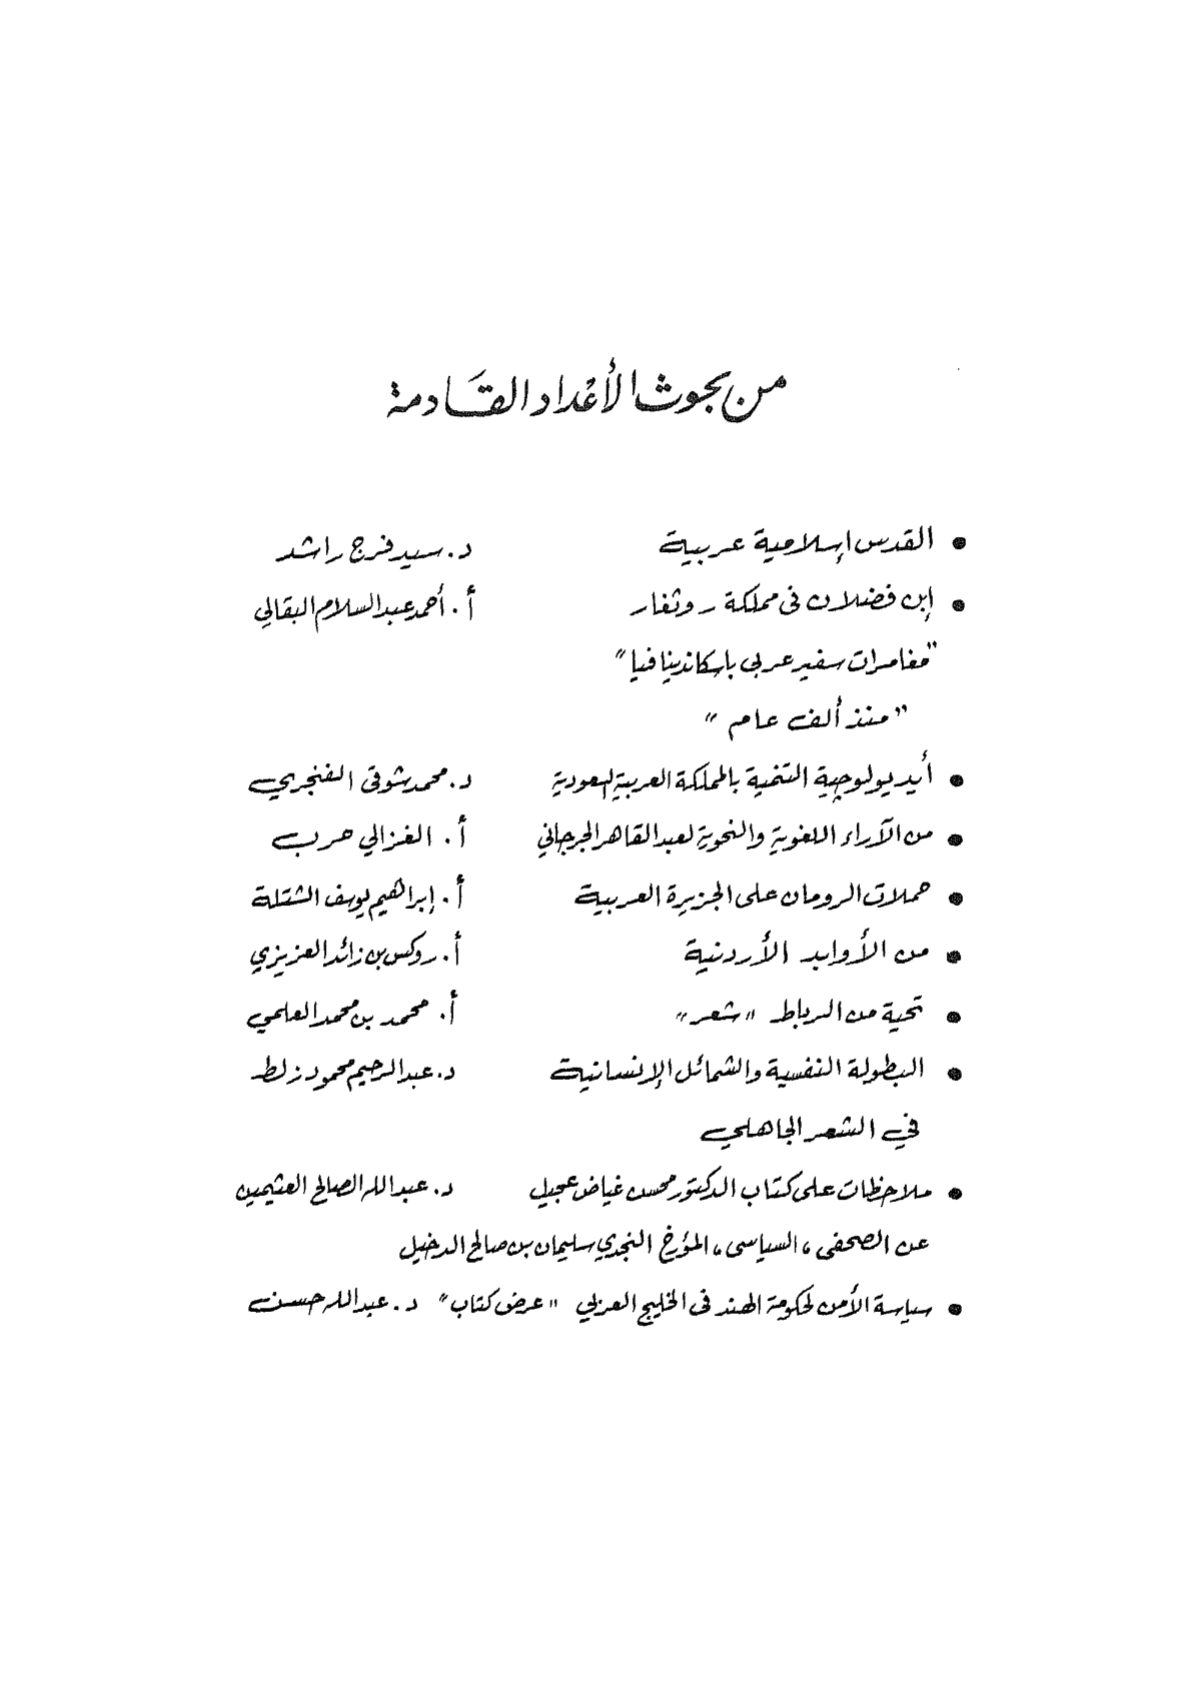 من بحوث الأعْداد القَادمة
• القدس إسلامية عربية د. سيد فرج راشد
• إبن فضلان فى مملكة روثغار أ. أحمد عبد السلام البقالي
"مغامرات سفير عربى باسكاندينافيا"
"منذ ألف عام"
• أيديولوجية التنمية بالمملكة العربية السعودية د. محمد شوقى الفنجري
• من الآراء اللغوية والنحوية لعبد القاهر الجرجاني أ. الغزالي حرب
• حملات الرومان على الجزيرة العربية أ. إبراهيم يوسف الشتلة
• من الأوابد الأردنية أ. روكس بن زائد العزيزي
• تحية من الرباط "شعر" أ. محمد بن محمد العلمي
• البطولة النفسية والشمائل الإنسانية د. عبد الرحيم محمود زلط
في الشعر الجاهلي
• ملاحظات على كتاب الدكتور محسن غياض عجيل د. عبد الله الصالح العثيمين
عن الصحفى، السياسى، المؤرخ النجدي سليمان بن صالح الدخيل
• سياسة الأمن لحكومة الهند فى الخليج العربي "عرض كتاب" د. عبد الله حسن